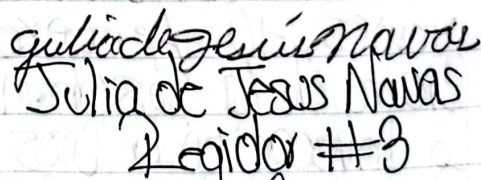 Julia de Jesús Navas
Julia de Jesus Navas
Regidor #3